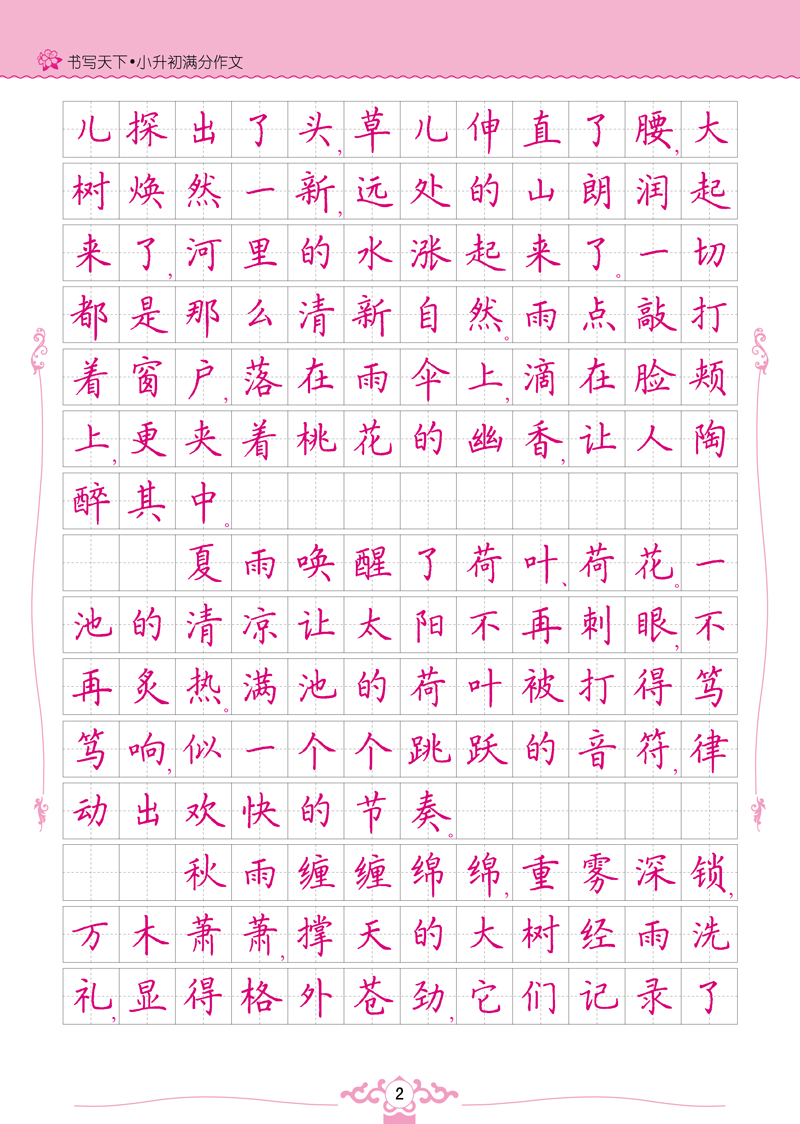 书写天下•小升初满分作文
儿探出了头,草儿伸直了腰,大
树焕然一新,远处的山朗润起
来了,河里的水涨起来了。一切
都是那么清新自然。雨点敲打
着窗户,落在雨伞上,滴在脸颊
上,更夹着桃花的幽香,让人陶
醉其中。
夏雨唤醒了荷叶、荷花。一
池的清凉让太阳不再刺眼,不
再炙热。满池的荷叶被打得笃
笃响,似一个个跳跃的音符,律
动出欢快的节奏。
秋雨缠缠绵绵,重雾深锁,
万木萧萧,撑天的大树经雨洗
礼,显得格外苍劲,它们记录了
2